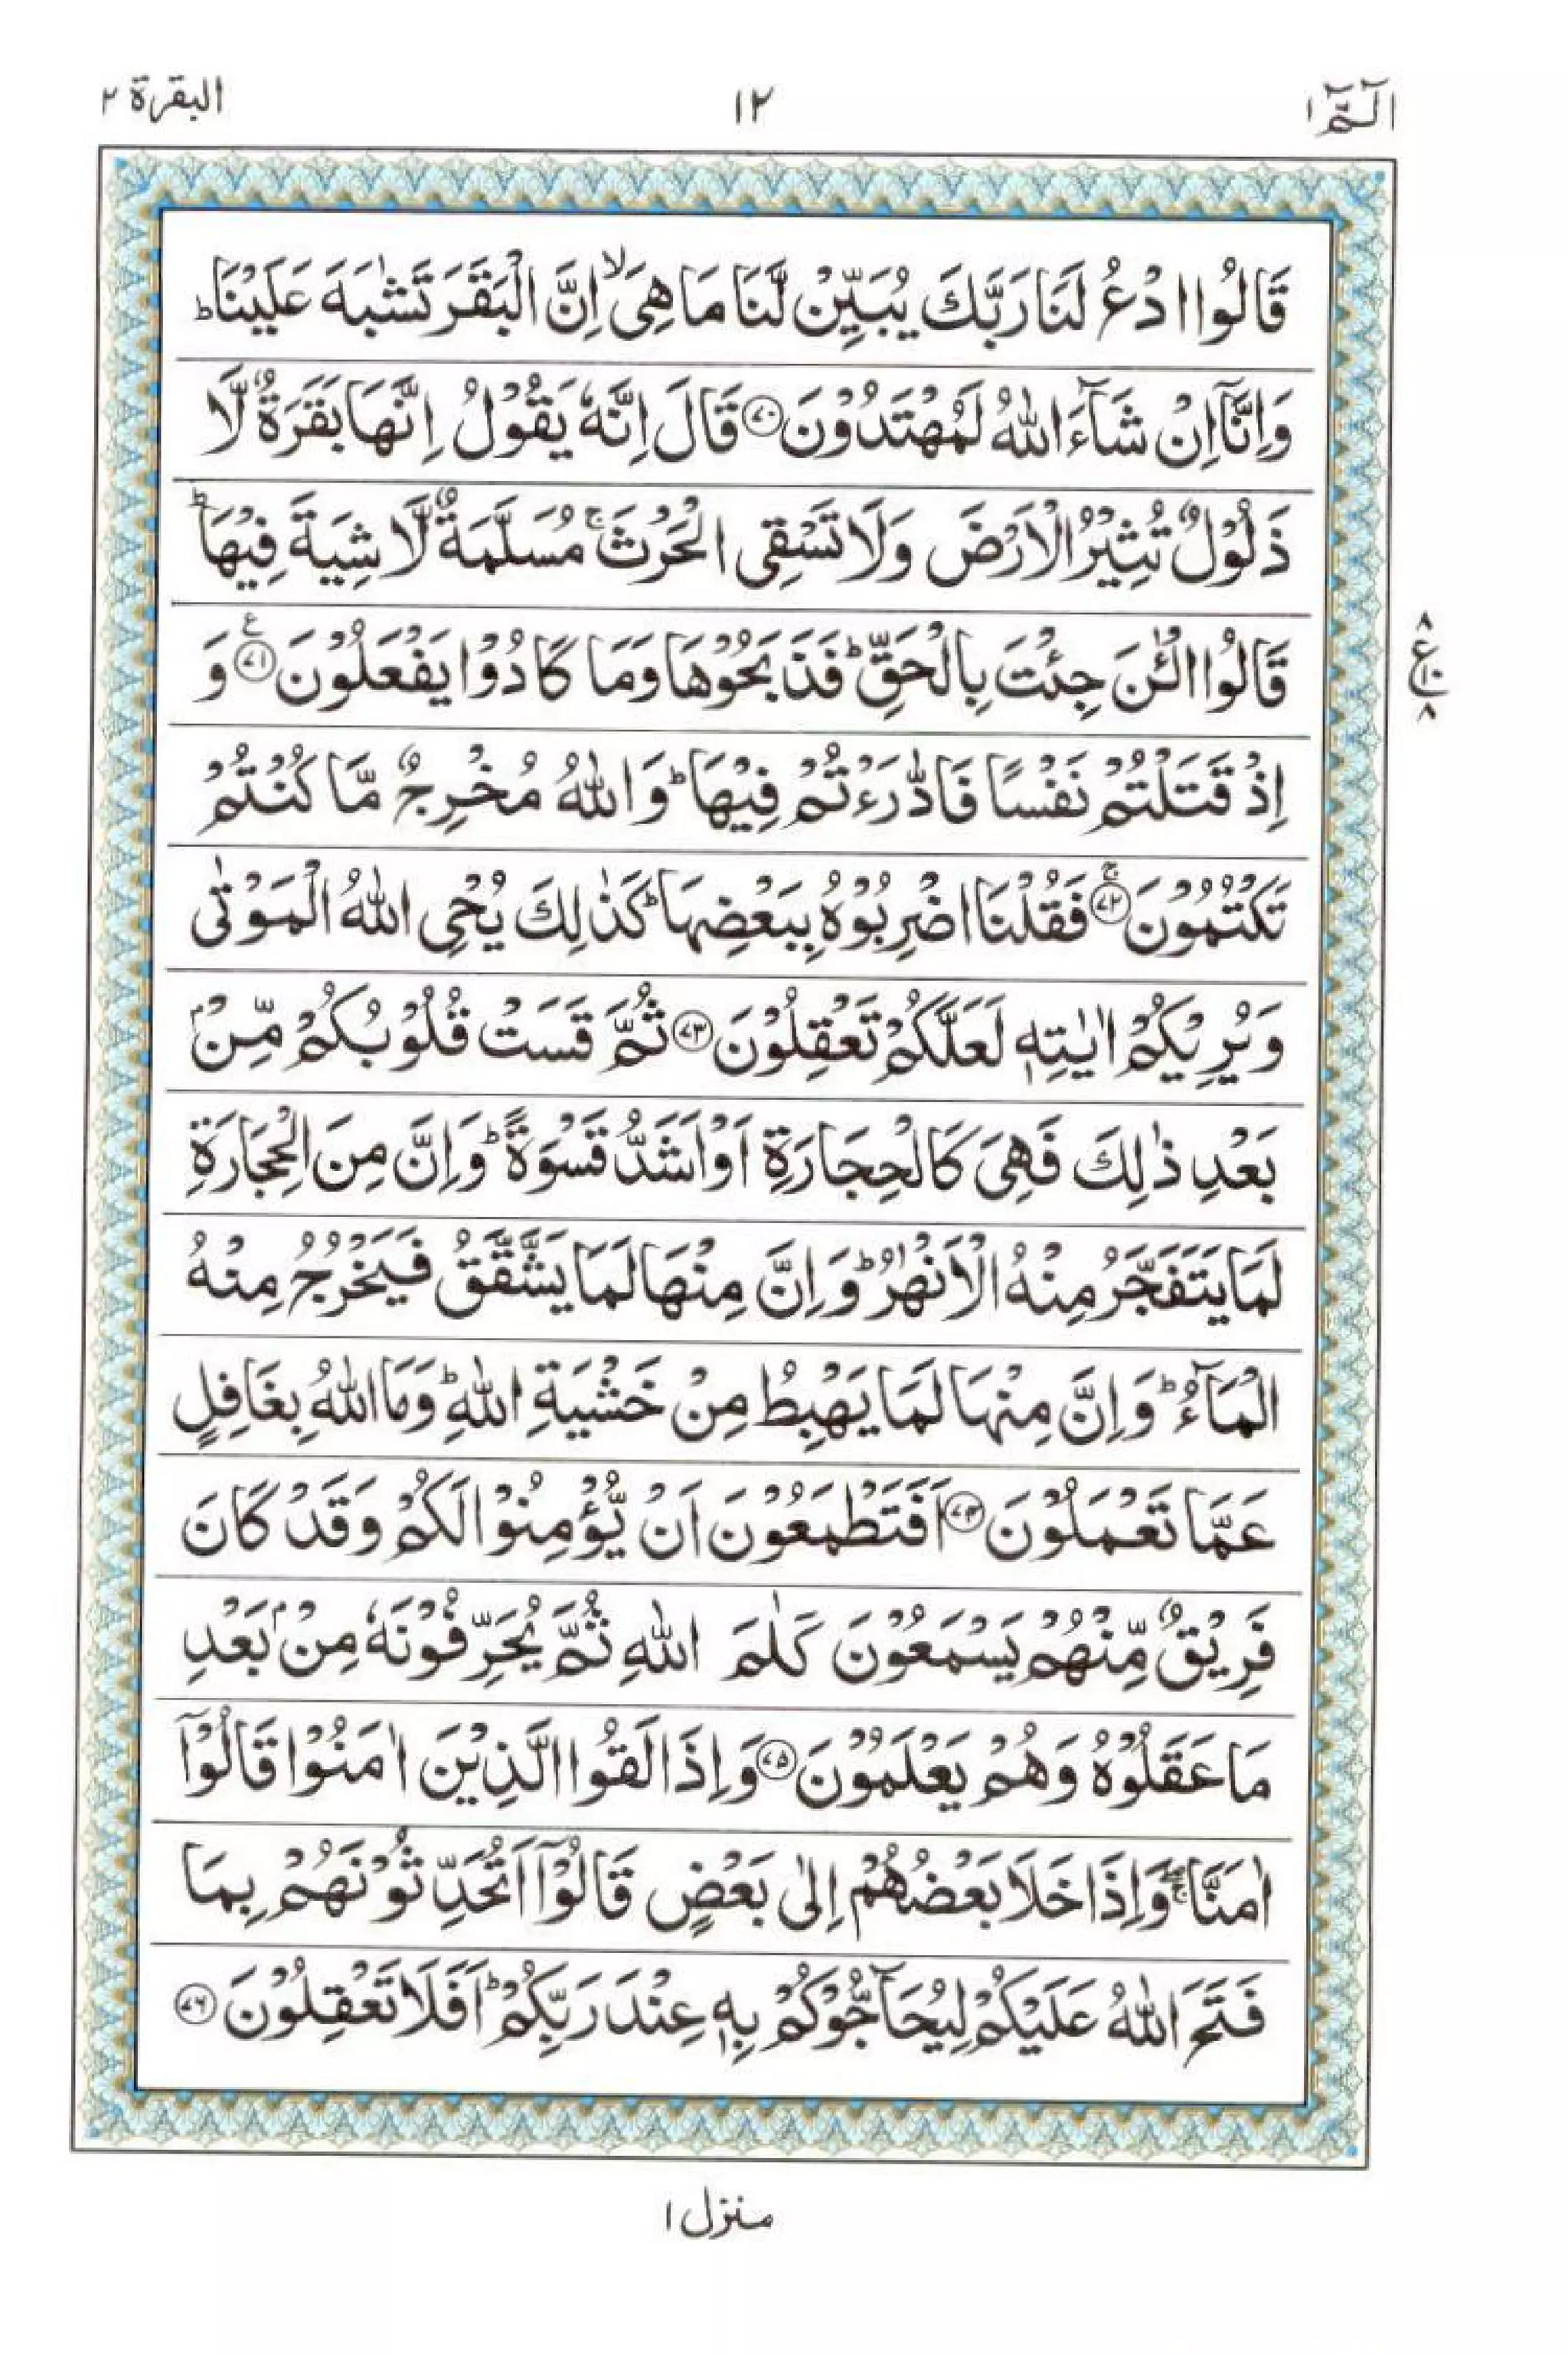 الٓمّٓ ١
١٢
البقرة ٢
قَالُوا ادْعُ لَنَا رَبَّكَ يُبَيِّنْ لَّنَا مَا هِىَ ۙ اِنَّ الْبَقَرَ تَشٰبَهَ عَلَيْنَا ؕ
وَاِنَّآ اِنْ شَآءَ اللّٰهُ لَمُهْتَدُوْنَ ۝٧٠ قَالَ اِنَّهٗ يَقُوْلُ اِنَّهَا بَقَرَةٌ لَّا
ذَلُوْلٌ تُثِيْرُ الْاَرْضَ وَلَا تَسْقِى الْحَرْثَ ۚ مُسَلَّمَةٌ لَّا شِيَةَ فِيْهَا ؕ
قَالُوا الْـٰٔنَ جِئْتَ بِالْحَقِّ ؕ فَذَبَحُوْهَا وَمَا كَادُوْا يَفْعَلُوْنَ ۝٧١ ع وَ
٨ ع ١٠ ٨
اِذْ قَتَلْتُمْ نَفْسًا فَادّٰرَءْتُمْ فِيْهَا ؕ وَاللّٰهُ مُخْرِجٌ مَّا كُنْتُمْ
تَكْتُمُوْنَ ۝٧٢ ۚ فَقُلْنَا اضْرِبُوْهُ بِبَعْضِهَا ؕ كَذٰلِكَ يُحْىِ اللّٰهُ الْمَوْتٰى
وَيُرِيْكُمْ اٰيٰتِهٖ لَعَلَّكُمْ تَعْقِلُوْنَ ۝٧٣ ثُمَّ قَسَتْ قُلُوْبُكُمْ مِّنْۢ
بَعْدِ ذٰلِكَ فَهِىَ كَالْحِجَارَةِ اَوْ اَشَدُّ قَسْوَةً ؕ وَاِنَّ مِنَ الْحِجَارَةِ
لَمَا يَتَفَجَّرُ مِنْهُ الْاَنْهٰرُ ؕ وَاِنَّ مِنْهَا لَمَا يَشَّقَّقُ فَيَخْرُجُ مِنْهُ
الْمَآءُ ؕ وَاِنَّ مِنْهَا لَمَا يَهْبِطُ مِنْ خَشْيَةِ اللّٰهِ ؕ وَمَا اللّٰهُ بِغَافِلٍ
عَمَّا تَعْمَلُوْنَ ۝٧٤ اَفَتَطْمَعُوْنَ اَنْ يُّؤْمِنُوْا لَكُمْ وَقَدْ كَانَ
فَرِيْقٌ مِّنْهُمْ يَسْمَعُوْنَ كَلٰمَ اللّٰهِ ثُمَّ يُحَرِّفُوْنَهٗ مِنْۢ بَعْدِ
مَا عَقَلُوْهُ وَهُمْ يَعْلَمُوْنَ ۝٧٥ وَاِذَا لَقُوا الَّذِيْنَ اٰمَنُوْا قَالُوْٓا
اٰمَنَّا ۖۚ وَاِذَا خَلَا بَعْضُهُمْ اِلٰى بَعْضٍ قَالُوْٓا اَتُحَدِّثُوْنَهُمْ بِمَا
فَتَحَ اللّٰهُ عَلَيْكُمْ لِيُحَآجُّوْكُمْ بِهٖ عِنْدَ رَبِّكُمْ ؕ اَفَلَا تَعْقِلُوْنَ ۝٧٦
منزل ١